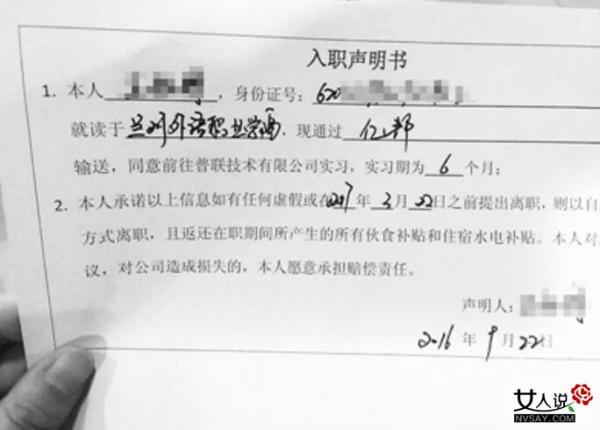 入职声明书
1. 本人 ，身份证号：620
就读于兰州外语职业学院，现通过
输送，同意前往普联技术有限公司实习，实习期为 6 个月；
2. 本人承诺以上信息如有任何虚假或在2017年3月22日之前提出离职，则以自
方式离职，且返还在职期间所产生的所有伙食补贴和住宿水电补贴。本人对
议，对公司造成损失的，本人愿意承担赔偿责任。
声明人：
2016 年 9 月 22 日
女人说
NVSAY.COM